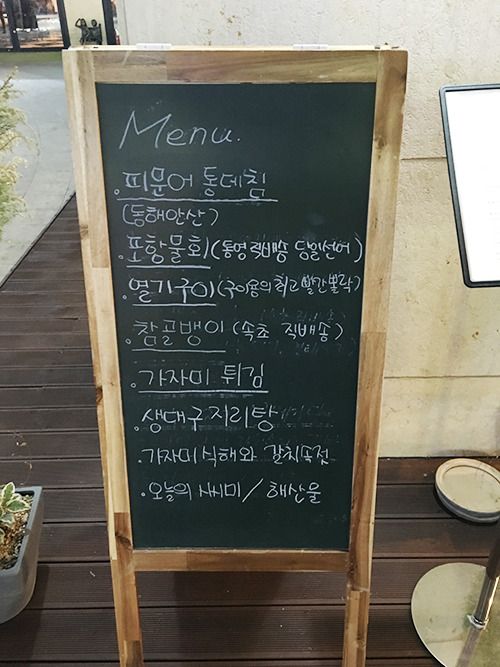 Menu.
.피문어 통데침
(동해안산)
.포항물회 (통영 직배송 당일선어)
.열기구이 (구이용의 최고 빨간뽈락)
.참골뱅이 (속초 직배송)
.가자미 튀김
.생대구지리탕
.가자미식해와 갈치속젓
.오늘의 사시미 / 해산물